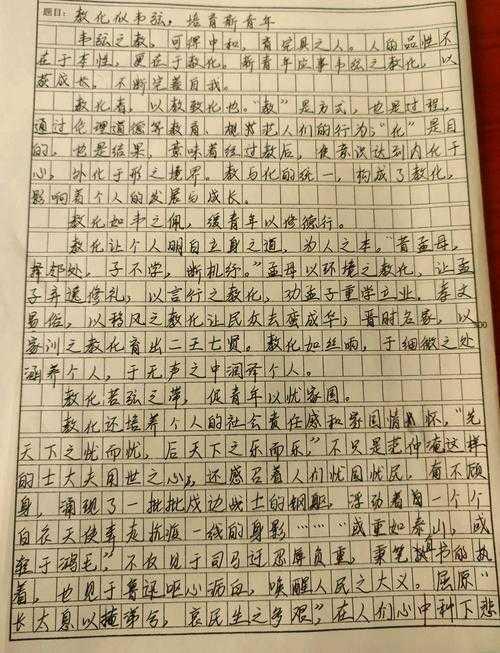 题目：教化似韦弦，培育新青年
韦弦之教，可得中和，育完具之人。人的品性不
在于本性，更在于教化。新青年应事韦弦之教化，以
获成长，不断完善自我。
教化者，以教致化也。“教”是方式，也是过程，
通过伦理道德等教育、规范人们的行为；“化”是目
的，也是结果，意味着经过教后，使意识达到内化于
心，外化于形之境界。教与化的统一，构成了教化，
影响着个人的发展与成长。
教化如韦之佩，缓青年以修德行。
教化让个人明白立身之道，为人之本。“昔孟母，
择邻处，子不学，断机杼。”孟母以环境之教化，让孟
子弃逃修礼；以言行之教化，劝孟子重学立业。孝文
易俗，以移风之教化让民众去蛮成华；晋时名家，以
家训之教化育出二王七贤。教化如丝响，于细微之处
涵养个人，于无声之中润泽个人。
教化若弦之带，促青年以忧家国。
教化还培养个人的社会责任感和家国情怀，“先
天下之忧而忧，后天下之乐而乐，”不只是范仲淹这样
的士大夫用世之心，还感召着人们忧国忧民，奋不顾
身，涌现了一批批戍边战士的钢躯，浮动着一个个
白衣天使奔走抗疫一线的身影……“或重如泰山，或
轻于鸿毛”，不仅见于司马迁忍辱负重，秉笔直书的执
着，也见于鲁迅呕心沥血，唤醒人民之大义。屈原“
长太息以掩涕兮，哀民生之多艰”，在人们心中种下悲